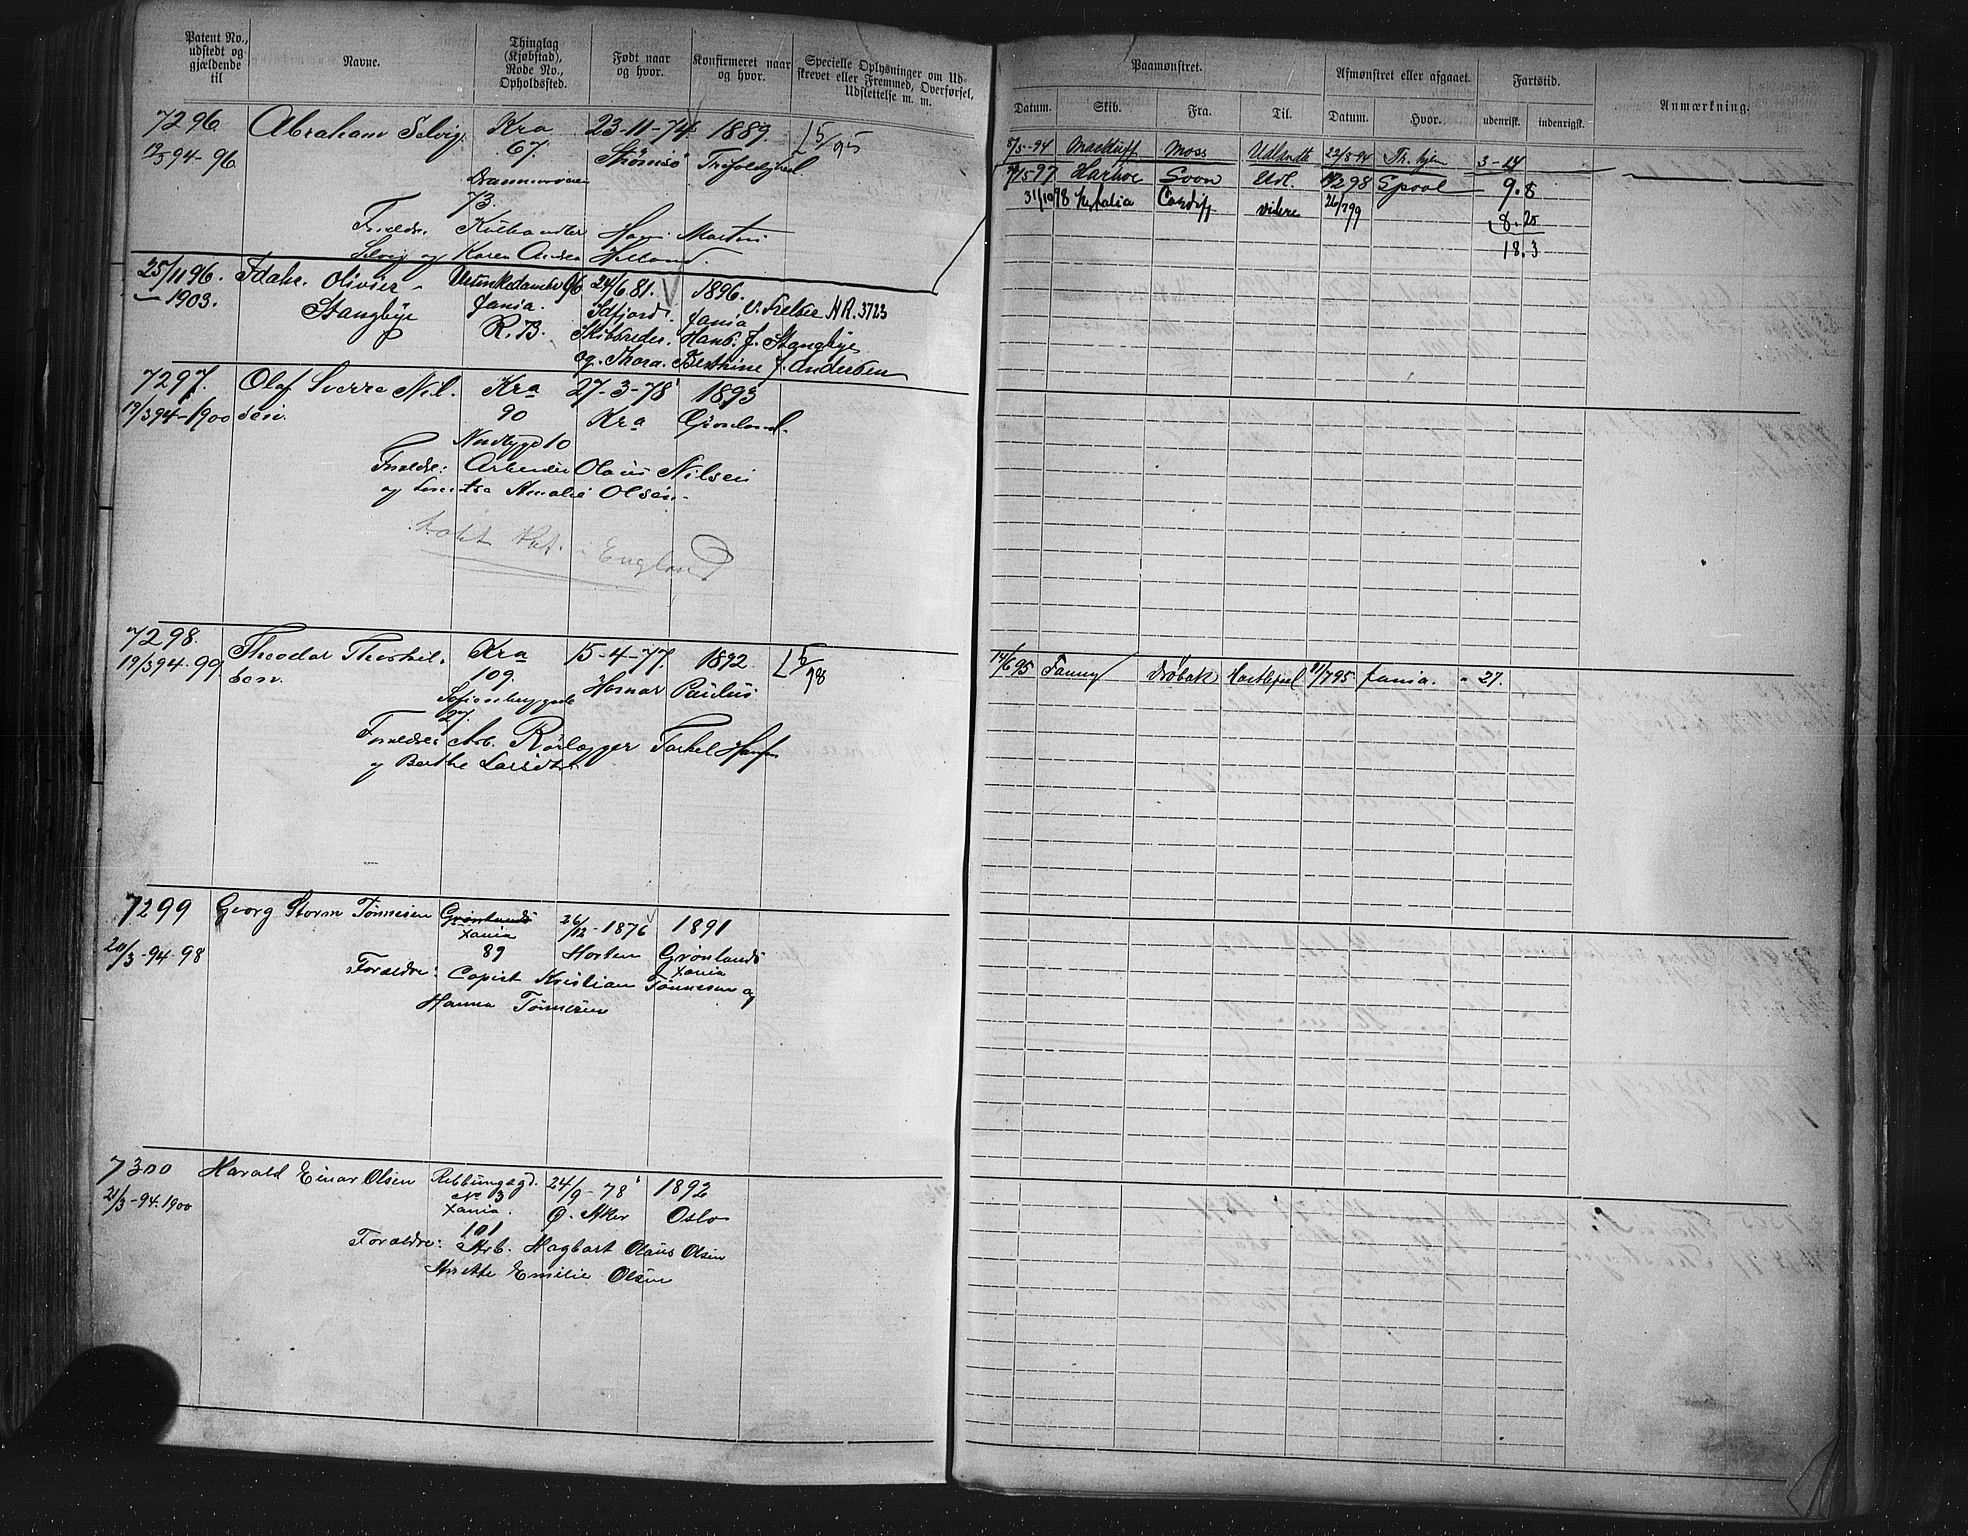 Patent No., udstedt og gjældende til
Navne.
Thinglag (Kjøbstad), Rode No., Opholdsted.
Født naar og hvor.
Konfirmeret naar og hvor.
Specielle Oplysninger om Udskrevet eller Fremmed, Overførsel, Udslettelse m. m.
7296 Abraham Selvig. Kra 23-11-74 1889. 5/95
94-96. 67. Strømsø Trefoldighed
Drammensveien
73.
Forældre: Kulhandler Hans Martin
Selvig og Karen Andrea
25/11 96. 24/6.81. 1896.
1903. Stangbye Xania. Xania NR. 3723
R. 73. Skibsreder. Hans. J. Stangbye
og. Thora. Berthine J. Andersen
7297. Olaf Sverre Nil- Kra 27-3-78 1893
19/3 94-1900 sen. 90 Kra Grønland.
Nordbygd 10
Forældre: Arbeider Olaus Nilsen
og Amalie Olsen.
England
7298. Theodor Thorkil- Kra 15-4-77. 1892. 5/98
19/3 94-99. sen. 109. Paulus
27.
Forældre: Arb. Rørlægger Torkel Hansen
og Berthe Larsdtr
7299 Georg Storm Tønnesen Grønlands 26/12-1876 1891
20/3-94-98 Xania Horten Grønlands
89 Xania
Forældre: Copist Kristian Tønnesen og
Hanna Tønnesen
7300 Harald Einar Olsen 24/9-78 1892
21/3-94.1900 No 3 Ø. Aker Oslo
Xania.
101
Forældre: Arb. Hagbart Olaus Olsen
Emilie Olsen
Paamønstret.
Afmønstret eller afgaaet.
Fartstid.
Anmærkning.
Datum. Skib. Fra. Til. Datum. Hvor. udenrigst. indenrigst.
5-94 Moss Udlandet 22/8-94 Tr. hjem 3-14
5 97 Soon Udl. 2 98 9.8
31/10 98 Cardiff videre 26/7 99 8.25
18.3
14/6 95 Fanny Drøbak Hartlepool 11/7 95. Xania. " 27.